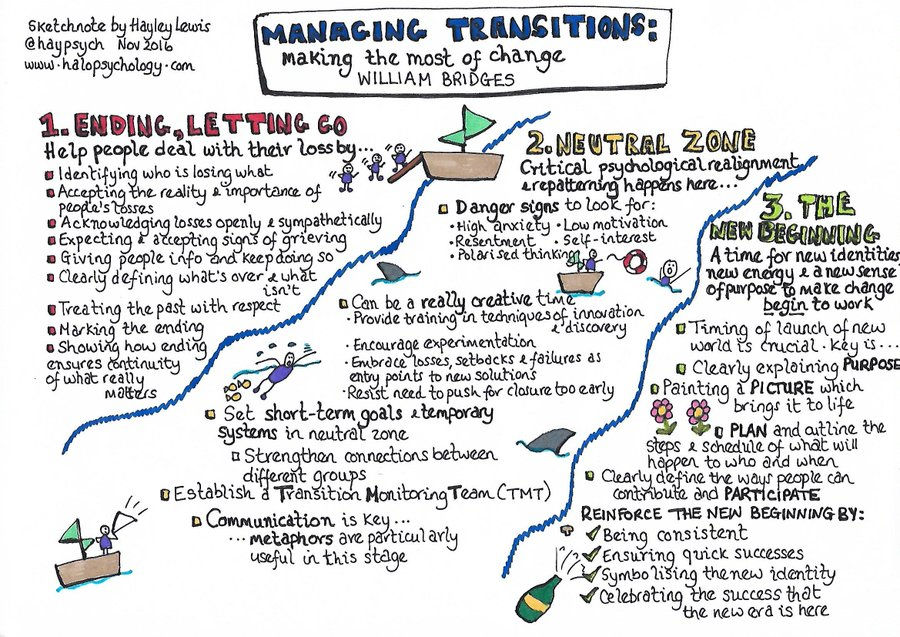 Sketchnote by Hayley Lewis
@haypsych Nov 2016
www.halopsychology.com
MANAGING TRANSITIONS:
making the most of change
WILLIAM BRIDGES
1. ENDING, LETTING GO
Help people deal with their loss by...
Identifying who is losing what
Accepting the reality & importance of
people's losses
Acknowledging losses openly & sympathetically
Expecting & accepting signs of grieving
Giving people info and keep doing so
Clearly defining what's over & what
isn't
Treating the past with respect
Marking the ending
Showing how ending
ensures continuity
of what really
matters
2. NEUTRAL ZONE
Critical psychological realignment
& repatterning happens here...
Danger signs to look for:
· High anxiety · Low motivation
· Resentment · Self-interest
· Polarised thinking
Can be a really creative time
· Provide training in techniques of innovation
& discovery
· Encourage experimentation
· Embrace losses, setbacks & failures as
entry points to new solutions
· Resist need to push for closure too early
Set short-term goals & temporary
systems in neutral zone
Strengthen connections between
different groups
Establish a Transition Monitoring Team (TMT)
Communication is key...
... metaphors are particularly
useful in this stage
3. THE
NEW BEGINNING
A time for new identities,
new energy & a new sense
of purpose to make change
begin to work
Timing of launch of new
world is crucial. Key is...
Clearly explaining PURPOSE
Painting a PICTURE which
brings it to life
PLAN and outline the
steps & schedule of what will
happen to who and when
Clearly define the ways people can
contribute and PARTICIPATE
REINFORCE THE NEW BEGINNING BY:
✓ Being consistent
✓ Ensuring quick successes
✓ Symbolising the new identity
✓ Celebrating the success that
the new era is here